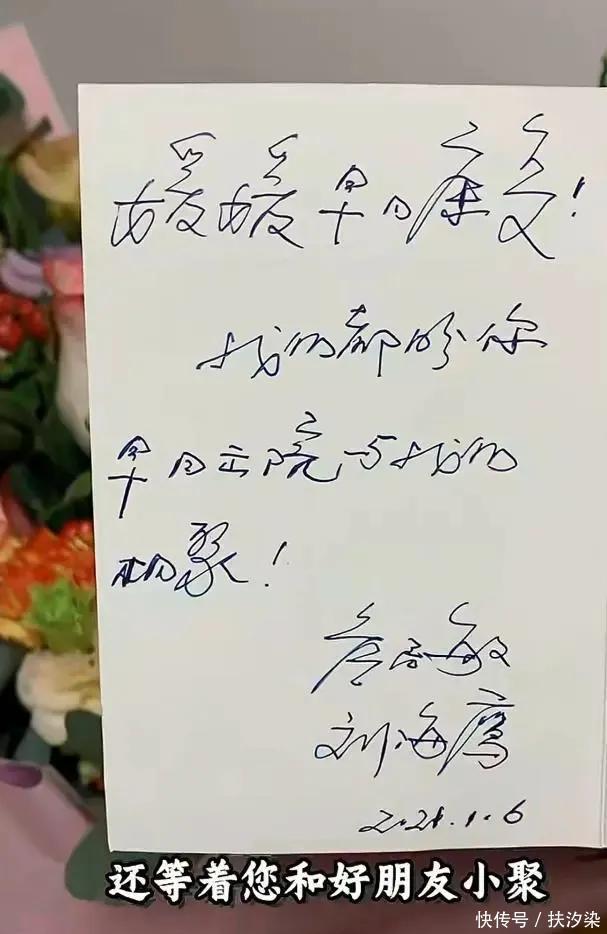 媛媛早日康复！
我们都盼你
早日出院与我们
相聚！
詹 敏
刘海鹰
202 .1.6
还等着您和好朋友小聚
快传号 / 扶汐染